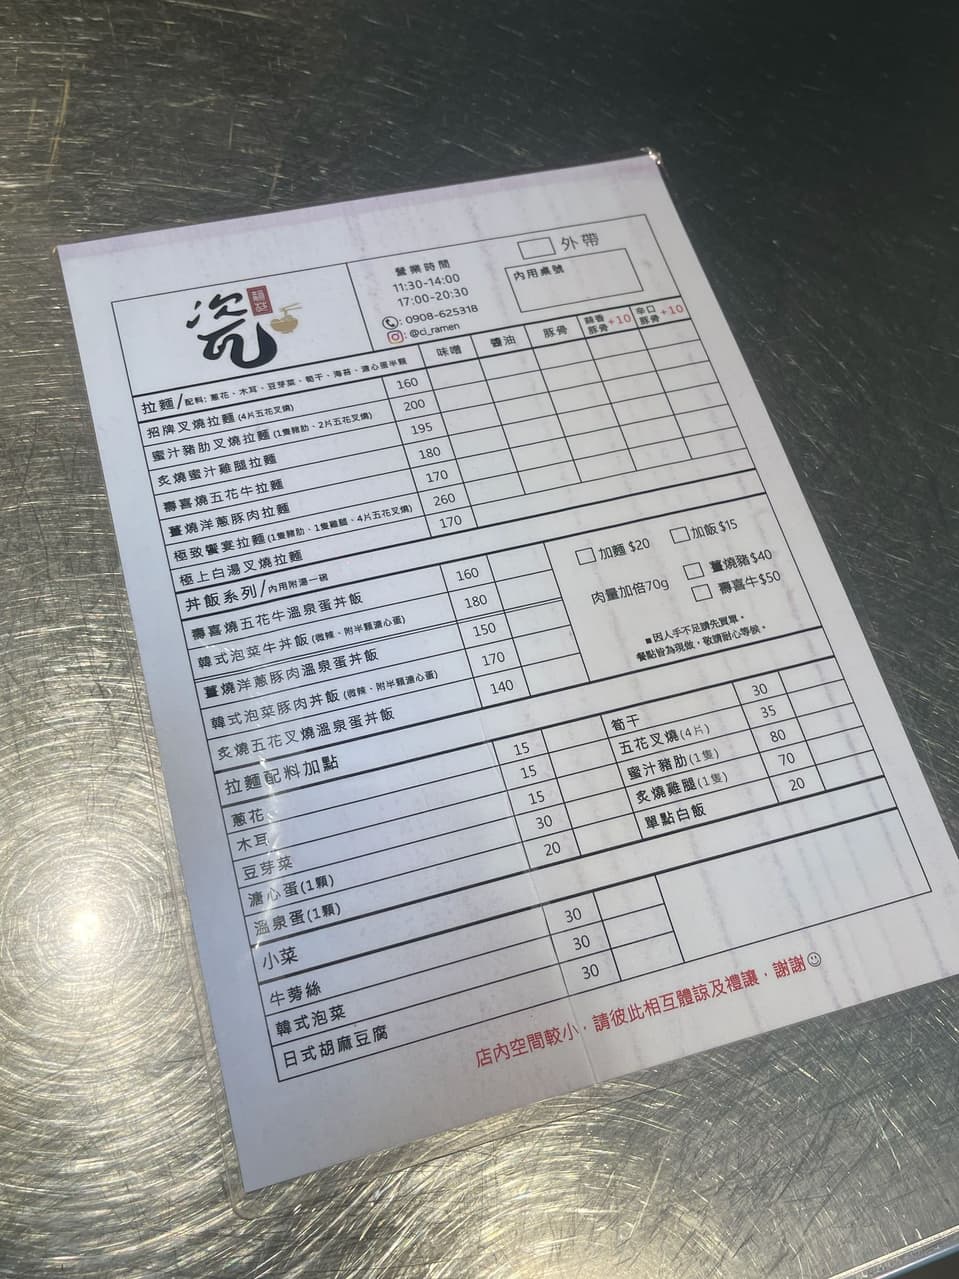 瓷
拉麵
營業時間
11:30-14:00
17:00-20:30
: 0908-625318
: @ci_ramen
外帶
內用桌號
拉麵/配料: 蔥花、木耳、豆芽菜、筍干、海苔、溏心蛋半顆 味噌 醬油 豚骨 蒜香豚骨+10 辛口豚骨+10
招牌叉燒拉麵(4片五花叉燒) 160
蜜汁豬肋叉燒拉麵(1隻豬肋、2片五花叉燒) 200
炙燒蜜汁雞腿拉麵 195
壽喜燒五花牛拉麵 180
薑燒洋蔥豚肉拉麵 170
極致饗宴拉麵(1隻豬肋、1隻雞腿、4片五花叉燒) 260
極上白湯叉燒拉麵 170
丼飯系列/內用附湯一碗
壽喜燒五花牛溫泉蛋丼飯 160
韓式泡菜牛丼飯(微辣、附半顆溏心蛋) 180
薑燒洋蔥豚肉溫泉蛋丼飯 150
韓式泡菜豚肉丼飯(微辣、附半顆溏心蛋) 170
炙燒五花叉燒溫泉蛋丼飯 140
加麵 $20 加飯 $15
肉量加倍70g 薑燒豬 $40
壽喜牛 $50
■因人手不足請先買單。
餐點皆為現做，敬請耐心等候。
拉麵配料加點
蔥花 15
木耳 15
豆芽菜 15
溏心蛋(1顆) 30
溫泉蛋(1顆) 20
筍干 30
五花叉燒(4片) 35
蜜汁豬肋(1隻) 80
炙燒雞腿(1隻) 70
單點白飯 20
小菜
牛蒡絲 30
韓式泡菜 30
日式胡麻豆腐 30
店內空間較小，請彼此相互體諒及禮讓，謝謝☺